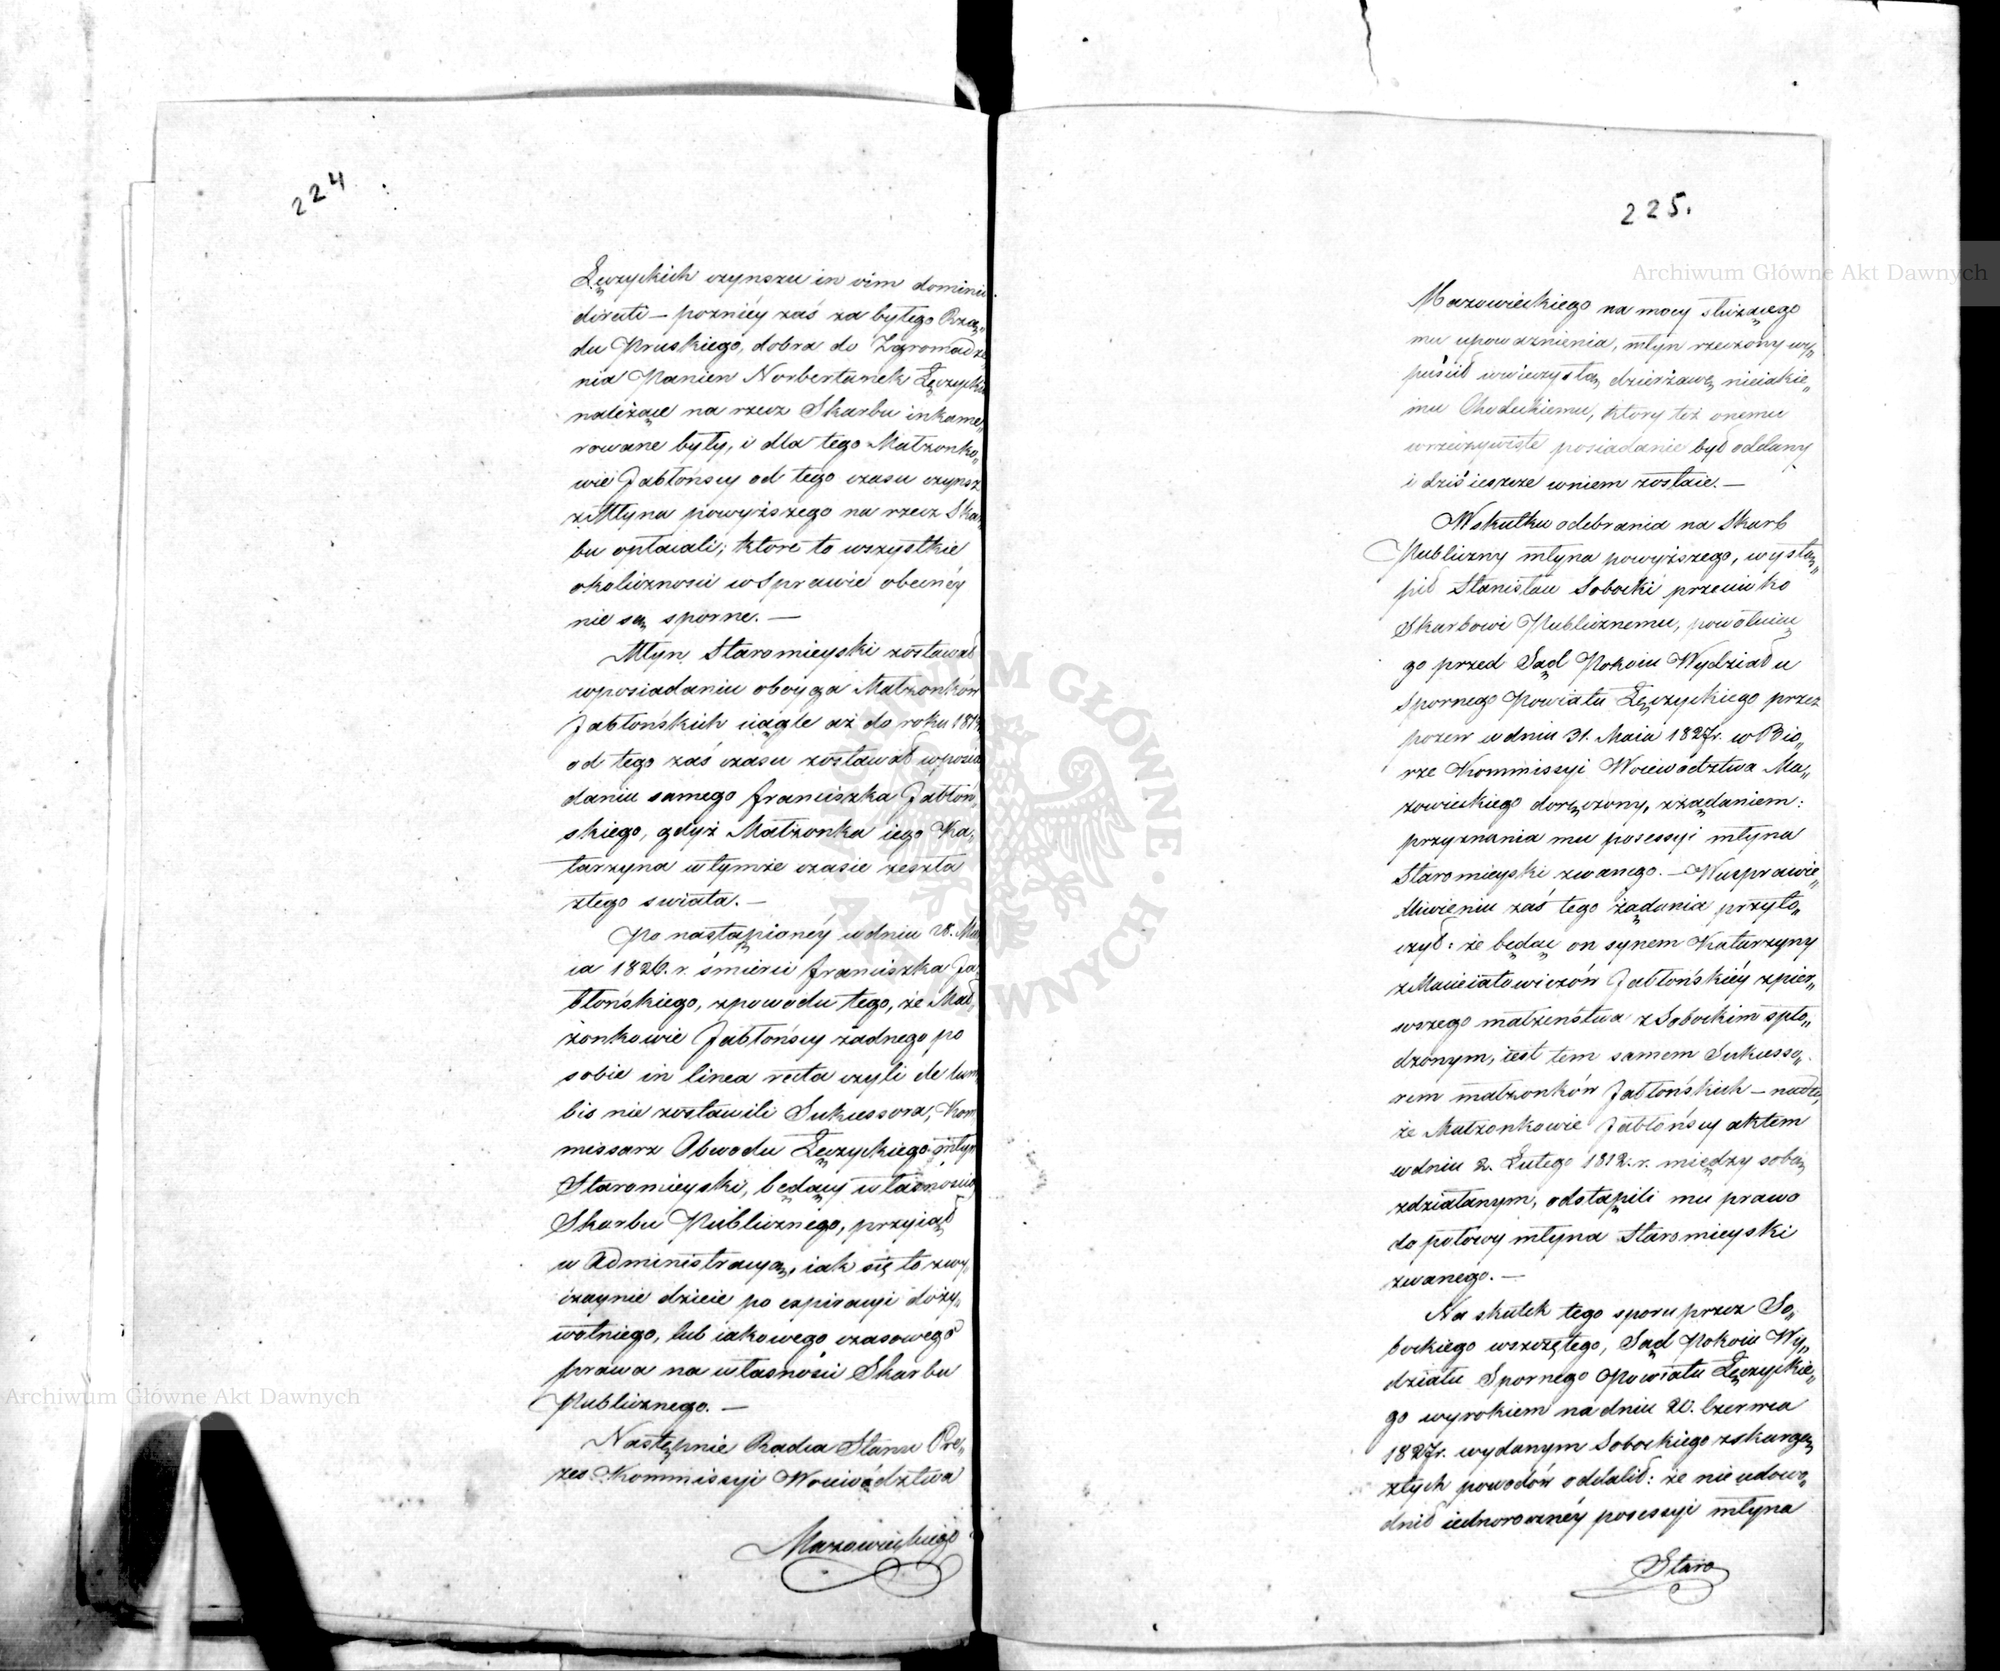 224
Łęczyckich czynszu in vim dominii
directi — pozniéy zaś za byłego Rzą„
du Pruskiego, dobra do Zgromadze
nia Panien Norbertanek Łęczyckich
należące na rzecz Skarbu inkame„
rowane były, i dla tego Małżonko„
wie Jabłońscy od tego czasu czynsz
z Młyna powyższego na rzecz Skar
bu opłacali; które to wszystkie
okoliczności w Sprawie obecnéy
nie są sporne. —
Młyn Staromieyski zostawał
w posiadaniu oboyga Małżonków
Jabłońskich ciągle aż do roku
od tego zaś czasu zostawał w posia
daniu samego Franciszka Jabłoń
skiego, gdyż Małżonka iego Ka„
tarzyna w tymże czasie zeszła
z tego swiata. —
Po nastąpionéy w dniu 28. Ma
ia 1826. r. śmierci Franciszka Ja„
błońskiego, z powodu tego, że Mał„
żonkowie Jabłońscy żadnego po
sobie in linea recta czyli de lum
bis nie zostawili Sukcessora, Kom
missarz Obwodu Łęczyckiego młyn
Staromieyski, będący własnością
Skarbu Publicznego, przyiął
w Administracyą, iak się to zwy„
czaynie dzieie po expiracyi doży„
wotniego, lub iakowego czasowego
prawa na własności Skarbu
Publicznego. —
Następnie Radca Stanu Pre„
zes Kommissyi Woiewództwa
Mazowieckiego
225.
Mazowieckiego na mocy służącego
mu upoważnienia, młyn rzeczony wy„
puścił w wieczystą dzierżawę nieiakie„
mu Chodeckiemu, który też onemu
w rzeczywiste posiadanie był oddany
i dziś ieszcze w niem zostaie. —
W skutku odebrania na Skarb
Publiczny młyna powyższego, wystą„
pił Stanisław Sobocki przeciwko
Skarbowi Publicznemu, powołuiąc
go przed Sąd Pokoiu Wydziału
Spornego Powiatu Łęczyckiego przez
pozew w dniu 31. Maia 1827r. w Bió„
rze Kommissyi Woiewództwa Ma„
zowieckiego doręczony, z żądaniem:
przyznania mu posessyi młyna
Staromieyski zwanego. — W usprawie„
dliwieniu zaś tego żądania przyto„
czył: że będąc on synem Katarzyny
z Maciciałowiczów Jabłońskiéy z pier„
wszego małżeństwa z Sobockim spło„
dzonym, iest tem samem Sukcesso„
rem małżonków Jabłońskich — nadto,
że Małżonkowie Jabłońscy aktem
w dniu 2. Lutego 1812. r. między sobą
zdziałanym, odstąpili mu prawo
do połowy młyna Staromieyski
zwanego. —
Na skutek tego sporu przez So„
bockiego wszczętego, Sąd Pokoiu Wy„
działu Spornego Powiatu Łęczyckie„
go wyrokiem na dniu 20. Czerwca
1827r. wydanym Sobockiego z skargą
z tych powodów oddalił: że nie udowo„
dnił iednorocznéy posessyi młyna
Staro